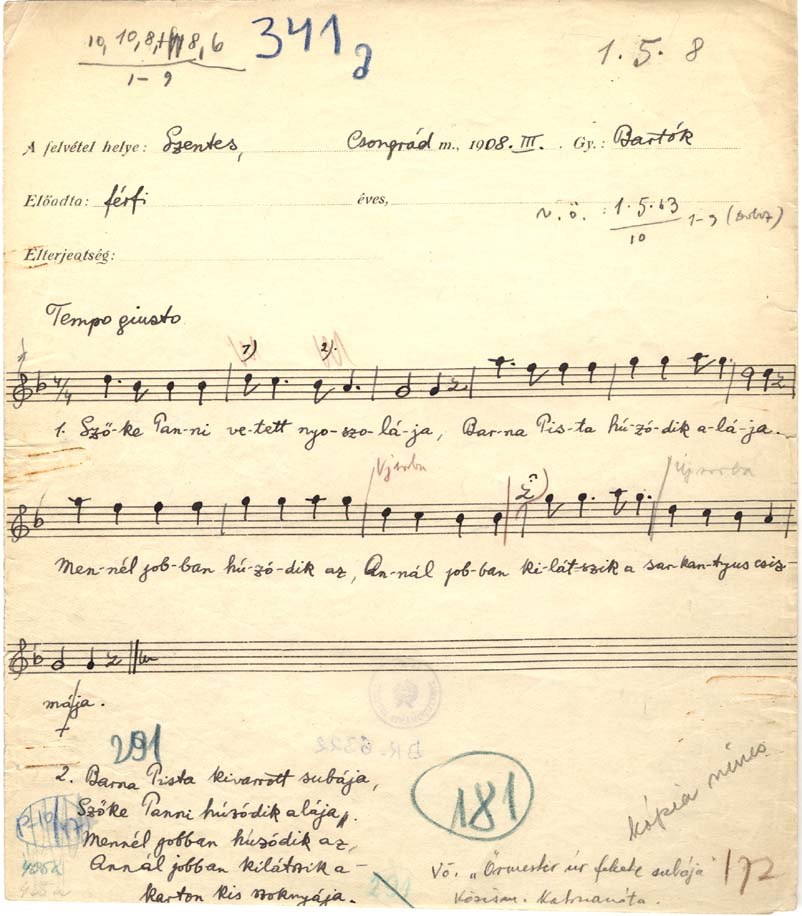 10, 10, 8, 8, 6
1-9
341
1. 5. 8
A felvétel helye: Szentes, Csongrád m., 1908. III. Gy.: Bartók
Előadta: férfi éves,
v. ö. : 1.5.63 1-9
10
Elterjeatség:
Tempo giusto
1) 2)
4/4
1. Sző-ke Pan-ni ve-tett nyo-szo-lá-ja, Bar-na Pis-ta hú-zó-dik a-lá-ja.
Uj sorba Új sorba
Men-nél job-ban hú-zó-dik az, An-nál job-ban ki-lát-szik a sar-kan-tyus csiz-
mája.
291
2. Barna Pista kivarrott subája,
Szőke Panni húzódik alája,
Mennél jobban húzódik az,
Annál jobban kilátszik a-
karton kis szoknyája.
181
kópia nincs
Vö. „Örmester úr fekete subája"
Közism. Katonanóta.
172
291
DR. 6322